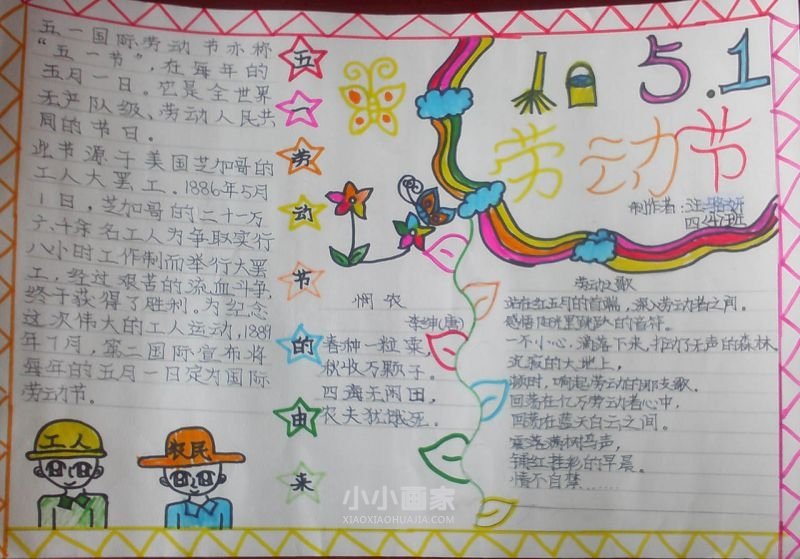 五一国际劳动节亦称
“五一节”,在每年的
五月一日。它是全世界
无产队级、劳动人民共
同的节日。
此节源于美国芝加哥的
工人大罢工。1886年5月
1日,芝加哥的二十一万
六千余名工人为争取实行
八小时工作制而举行大罢
工,经过艰苦的流血斗争,
终于获得了胜利。为纪念
这次伟大的工人运动,1889
年7月,第二国际宣布将
每年的五月一日定为国际
劳动节。
工人
农民
五一劳动节的由来
5.1
劳动节
制作者:汪
四(4)班
悯农
李绅(唐)
春种一粒粟,
秋收万颗子。
四海无闲田,
农夫犹饿死。
劳动之歌
站在红五月的首端,深入劳动者之间。
感悟阳光里跳跃的音符。
一不小心,滴落下来,打动了无声的森林
沉寂的大地上,
顿时,响起劳动的那支歌。
回荡在亿万劳动者心中,
回荡在蓝天白云之间。
震落满树鸟声,
铺红挂彩的早晨。
情不自禁……
小小画家
XIAOXIAOHUAJIA.COM